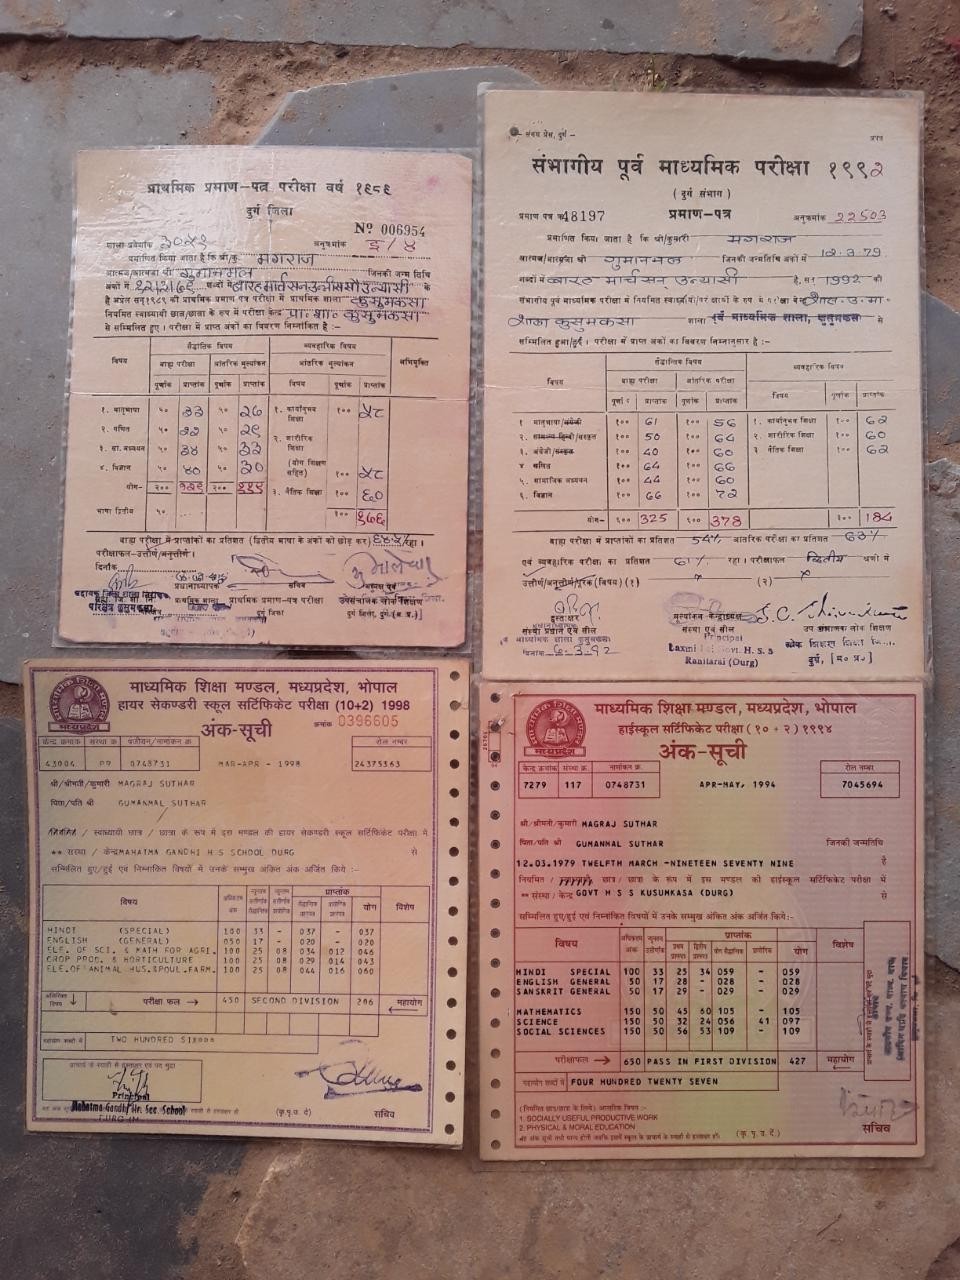 प्राथमिक प्रमाण-पत्र परीक्षा वर्ष १९८९
दुर्ग जिला
Nº 006954
शाला प्रवेशांक अनुक्रमांक इ/४
प्रमाणित किया जाता है कि श्री/कु. मगराज
आत्मज/आत्मजा श्री गुमानमल जिनकी जन्म तिथि
अंकों में १२।३।७९ शब्दों में बारह मार्च सन उन्नीस सौ उन्यासी के
है अप्रेल सन् १९८९ की प्राथमिक प्रमाण पत्र परीक्षा में प्राथमिक शाला कुसुमकसा
नियमित स्वाध्यायी छात्र/छात्रा के रूप में परीक्षा केन्द्र प्रा. शा. कुसुमकसा
से सम्मिलित हुए। परीक्षा में प्राप्त अंकों का विवरण निम्नांकित है :-
सैद्धांतिक विषय व्यवहारिक विषय
विषय बाह्य परीक्षा आंतरिक मूल्यांकन आंतरिक मूल्यांकन अभियुक्ति
पूर्णांक प्राप्तांक पूर्णांक प्राप्तांक विषय पूर्णांक प्राप्तांक
१. मातृभाषा ५० ३३ ५० २७ १. कार्यानुभव शिक्षा १०० ५८
२. गणित ५० २२ ५० २९ २. शारीरिक शिक्षा
३. सा. अध्ययन ५० ३४ ५० ३३ (योग शिक्षण सहित) १०० ५८
४. विज्ञान ५० ४० ५० ३० ३. नैतिक शिक्षा १०० ६०
योग- २०० १२९ २०० ११९
भाषा द्वितीय ५० १७६
बाह्य परीक्षा में प्राप्तांकों का प्रतिशत (द्वितीय भाषा के अंकों को छोड़ कर) रहा।
परीक्षाफल-उत्तीर्ण/अनुत्तीर्ण।
दिनांक
प्रधानाध्यापक सचिव
प्राथमिक शाला प्राथमिक प्रमाण-पत्र परीक्षा उपसंचालक लोक शिक्षण
संभागीय पूर्व माध्यमिक परीक्षा १९९२
( दुर्ग संभाग )
प्रमाण पत्र क्र. 48197 प्रमाण-पत्र अनुक्रमांक 22503
प्रमाणित किया जाता है कि श्री/कुमारी मगराज
आत्मज/आत्मजा श्री गुमानमल जिनकी जन्मतिथि अंकों में 12.3.79
शब्दों में बारह मार्च सन् उन्यासी है, सन् 1992 की
शाला कुसुमकसा शाला पूर्व माध्यमिक शाला, कुसुमकसा से
सम्मिलित हुआ/हुई। परीक्षा में प्राप्त अंकों का विवरण निम्नानुसार है :-
सैद्धांतिक विषय व्यवहारिक विषय
विषय बाह्य परीक्षा आंतरिक परीक्षा
पूर्णांक प्राप्तांक पूर्णांक प्राप्तांक विषय पूर्णांक प्राप्तांक
१ मातृभाषा १०० 61 १०० 56 १. कार्यानुभव शिक्षा १०० 62
२. सामान्य हिन्दी/संस्कृत १०० 50 १०० 64 २. शारीरिक शिक्षा १०० 60
३. अंग्रेजी १०० 40 १०० 60 ३ नैतिक शिक्षा १०० 62
४ गणित १०० 64 १०० 66
५. सामाजिक अध्ययन १०० 44 १०० 60
६. विज्ञान १०० 66 १०० 72
योग- ६०० 325 ६०० 378 ३०० 184
बाह्य परीक्षा में प्राप्तांकों का प्रतिशत 54% आंतरिक परीक्षा का प्रतिशत 63%
एवं व्यवहारिक परीक्षा का प्रतिशत 61% रहा। परीक्षाफल द्वितीय श्रेणी में
उत्तीर्ण/अनुत्तीर्ण/पूरक (विषय) (१) (२)
हस्ताक्षर
संस्था प्रधान एवं सील संस्था एवं सील
Principal
Laxmi Bai Govt. H. S. S
Ranitarai (Durg)
दिनांक 6-3-92
उप संचालक लोक शिक्षण
दुर्ग, [म० प्र०]
माध्यमिक शिक्षा मण्डल, मध्यप्रदेश, भोपाल
हायर सेकण्डरी स्कूल सर्टिफिकेट परीक्षा (10+2) 1998
अंक-सूची क्रमांक 0396605
मध्यप्रदेश
केन्द्र क्रमांक संस्था क्र पंजीयन/नामांकन क्र. रोल नम्बर
43004 P9 0748731 MAR-APR - 1998 24375363
श्री/श्रीमती/कुमारी MAGRAJ SUTHAR
पिता/पति श्री GUMANMAL SUTHAR
नियमित / स्वाध्यायी छात्र / छात्रा के रूप में इस मण्डल की हायर सेकेण्डरी स्कूल सर्टिफिकेट परीक्षा में
** संस्था / केन्द्र MAHATMA GANDHI H S SCHOOL DURG से
सम्मिलित हुए/हुई एवं निम्नांकित विषयों में उनके सम्मुख अंकित अंक अर्जित किये :-
विषय प्राप्तांक योग विशेष
HINDI (SPECIAL) 100 33 - 037 - 037
ENGLISH (GENERAL) 050 17 - 020 - 020
ELE. OF SCI. & MATH FOR AGRI. 100 25 08 034 012 046
CROP PROD. & HORTICULTURE 100 25 08 029 014 043
ELE.OF ANIMAL HUS.&POUL.FARM. 100 25 08 044 016 060
परीक्षा फल → 450 SECOND DIVISION 206 महायोग
TWO HUNDRED SIX
Principal
Mahatma Gandhi Hr. Sec. School
(कृ.पृ.उ. दे) सचिव
माध्यमिक शिक्षा मण्डल, मध्यप्रदेश, भोपाल
हाईस्कूल सर्टिफिकेट परीक्षा (१०+२) १९९४
अंक-सूची
मध्यप्रदेश
केन्द्र क्रमांक संस्था क्र. नामांकन क्र. रोल नम्बर
7279 117 0748731 APR-MAY, 1994 7045694
श्री/श्रीमती/कुमारी MAGRAJ SUTHAR
पिता/पति श्री GUMANMAL SUTHAR जिनकी जन्मतिथि
12.03.1979 TWELFTH MARCH -NINETEEN SEVENTY NINE है
नियमित / स्वाध्यायी छात्र / छात्रा के रूप में इस मण्डल को हाईस्कूल सर्टिफिकेट परीक्षा में
** संस्था / केन्द्र GOVT H S S KUSUMKASA (DURG) से
सम्मिलित हुए/हुई एवं निम्नांकित विषयों में उनके सम्मुख अंकित अंक अर्जित किये:-
विषय प्राप्तांक योग विशेष
HINDI SPECIAL 100 33 25 34 059 - 059
ENGLISH GENERAL 50 17 28 - 028 - 028
SANSKRIT GENERAL 50 17 29 - 029 - 029
MATHEMATICS 150 50 45 60 105 - 105
SCIENCE 150 50 32 24 056 41 097
SOCIAL SCIENCES 150 50 56 53 109 - 109
परीक्षाफल → 650 PASS IN FIRST DIVISION 427 महायोग
महायोग शब्दों में FOUR HUNDRED TWENTY SEVEN
(नियमित छात्र/छात्रा के लिये) आन्तरिक विषय :-
1. SOCIALLY USEFUL PRODUCTIVE WORK
2. PHYSICAL & MORAL EDUCATION
(कृ.पृ.उ. दे.) सचिव